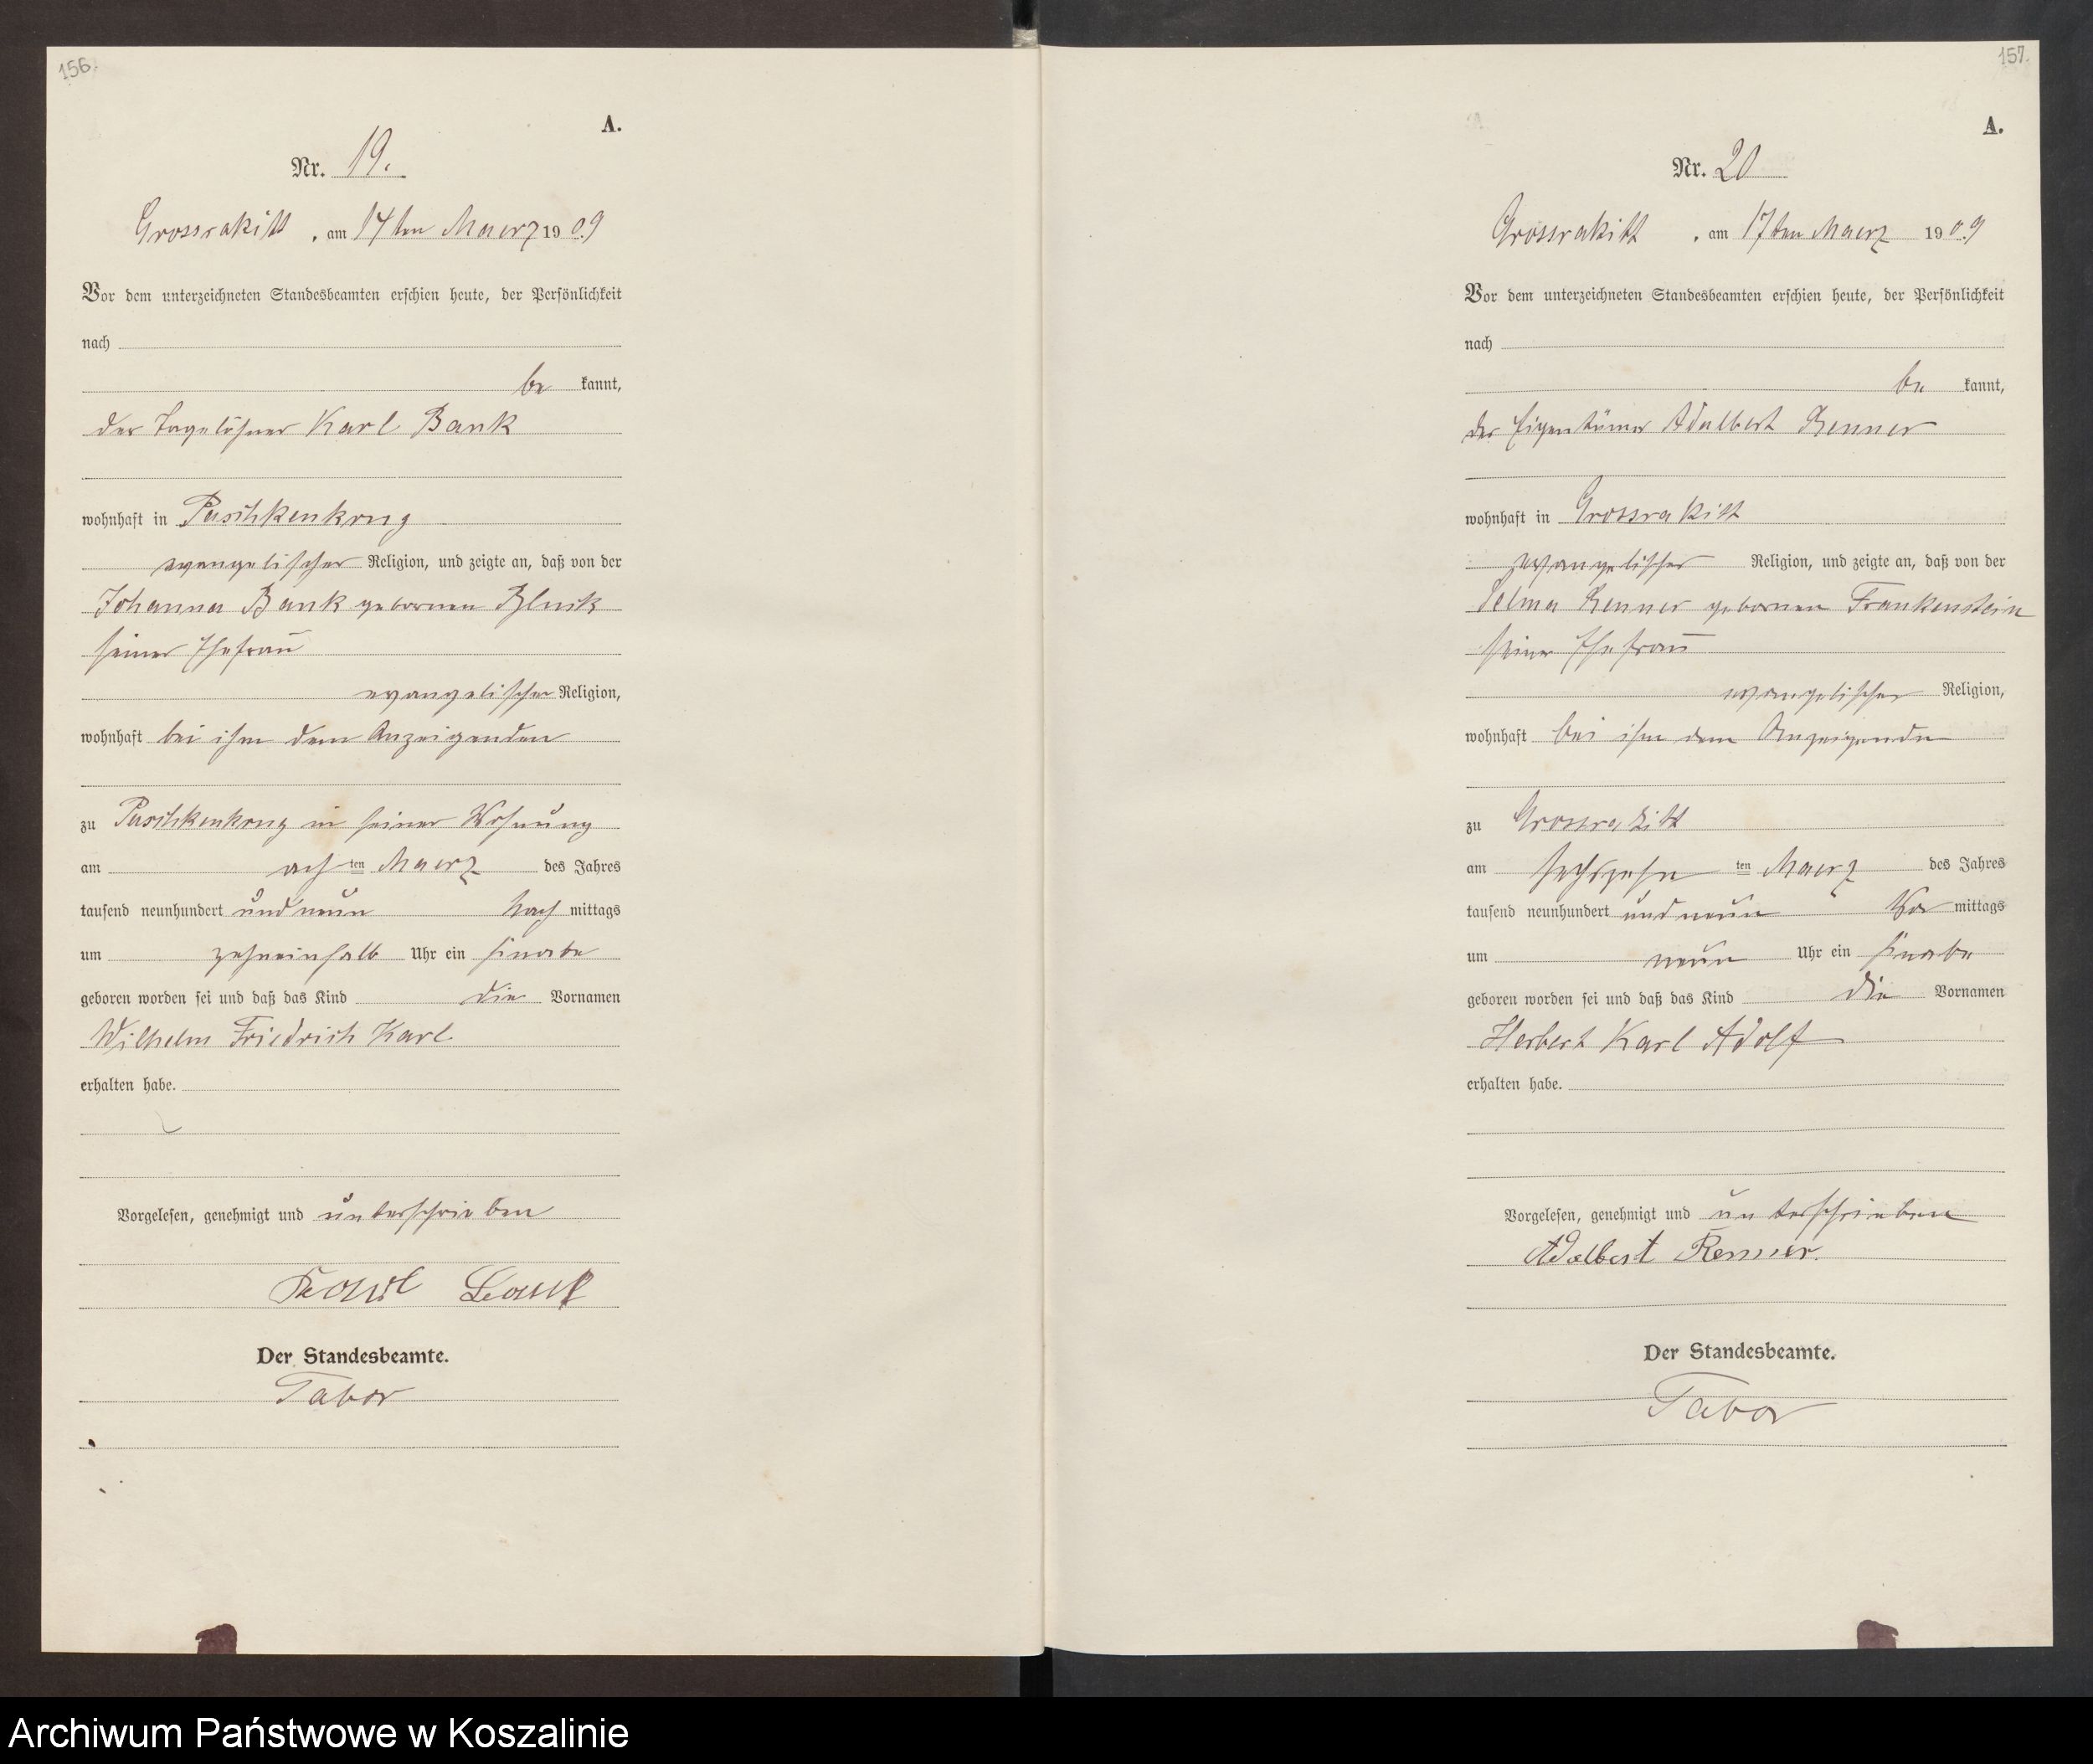 156.
A.
Nr. 19.
Grossrakitt, am 14ten Maerz 1909
Vor dem unterzeichneten Standesbeamten erschien heute, der Persönlichkeit
nach
be kannt,
der Tagelöhner Karl Bank
wohnhaft in Paschkenkrug
evangelischer Religion, und zeigte an, daß von der
Johanna Bank gebornen
seiner Ehefrau
evangelischer Religion,
wohnhaft bei ihm dem Anzeigenden
zu Paschkenkrug in seiner Wohnung
am ach ten Maerz des Jahres
tausend neunhundert und neun Nach mittags
um zehneinhalb Uhr ein Knabe
geboren worden sei und daß das Kind die Vornamen
Wilhelm Friedrich Karl
erhalten habe.
Vorgelesen, genehmigt und unterschrieben
Karl Bank
Der Standesbeamte.
Tabor
157.
A.
Nr. 20
Grossrakitt, am 17ten Maerz 1909
Vor dem unterzeichneten Standesbeamten erschien heute, der Persönlichkeit
nach
be kannt,
der Eigentümer Adalbert Renner
wohnhaft in Grossrakitt
evangelischer Religion, und zeigte an, daß von der
Selma Renner gebornen Frankenstein
seiner Ehefrau
evangelischer Religion,
wohnhaft bei ihm dem Anzeigenden
zu Grossrakitt
am sechszehn ten Maerz des Jahres
tausend neunhundert und neun Vor mittags
um neun Uhr ein Knabe
geboren worden sei und daß das Kind die Vornamen
Herbert Karl Adolf
erhalten habe.
Vorgelesen, genehmigt und unterschrieben
Adalbert Renner.
Der Standesbeamte.
Tabor
Archiwum Państwowe w Koszalinie